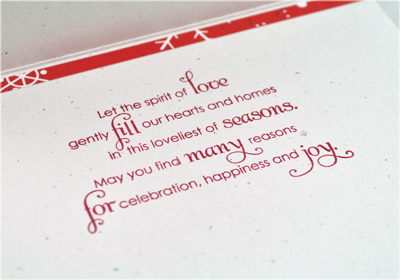 Let the spirit of love
gently fill our hearts and homes
in this loveliest of seasons.
May you find many reasons
for celebration, happiness and joy.